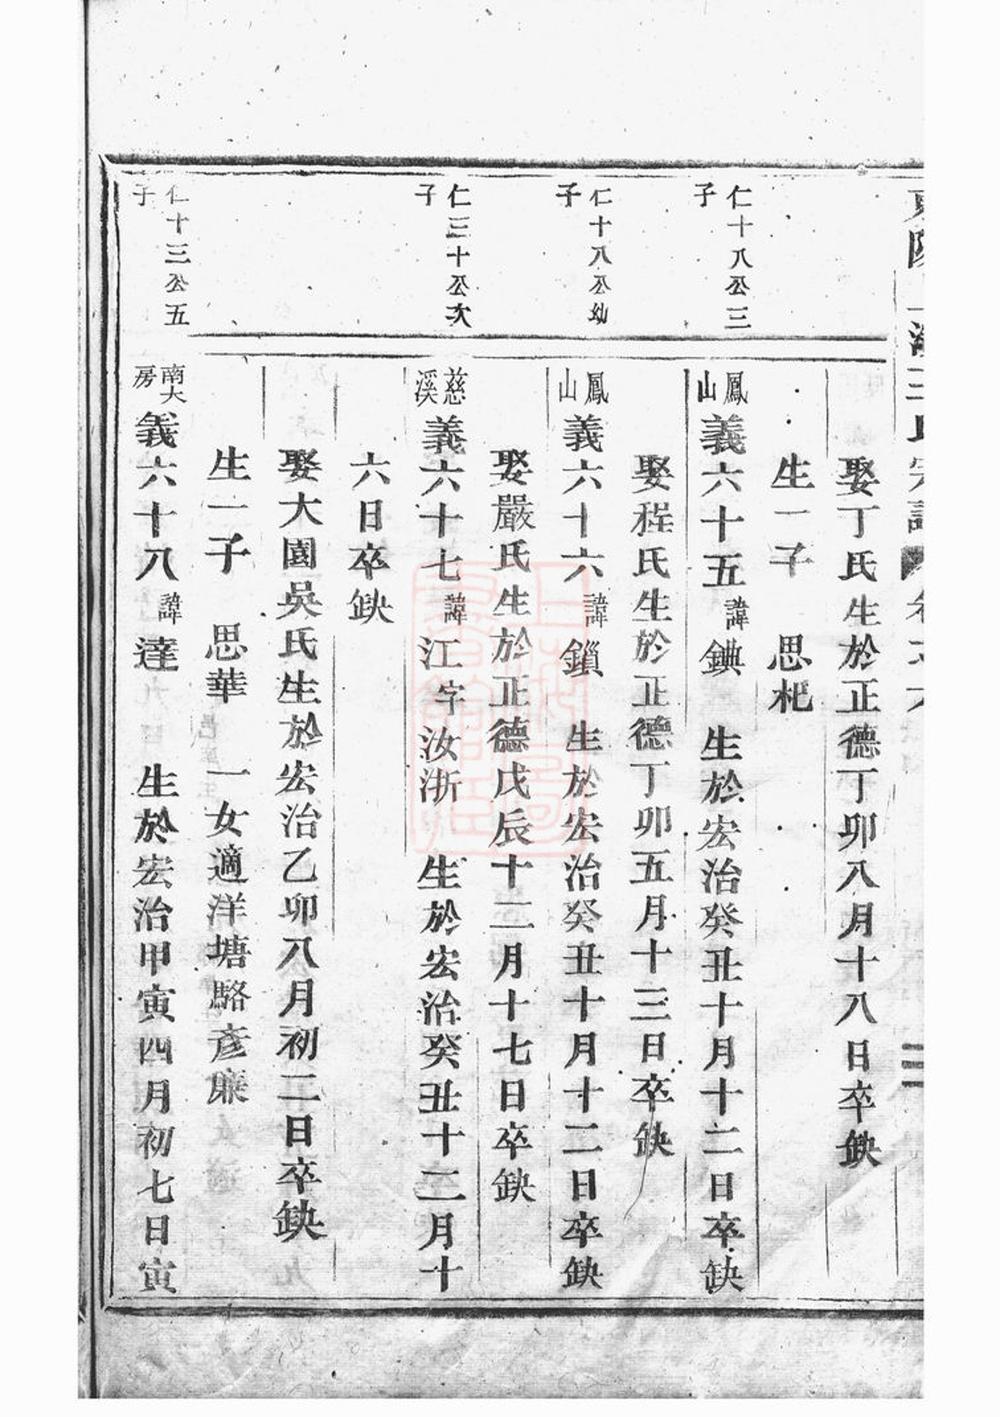 娶丁氏生於正德丁卯八月十八日卒缺
生一子　思杷
仁十八公三
子
鳳山義六十五諱錪　生於宏治癸丑十月十二日卒缺
娶程氏生於正德丁卯五月十三日卒缺
仁十八公幼
子
鳳山義六十六諱鎻　生於宏治癸丑十月十二日卒缺
娶嚴氏生於正德戊辰十二月十七日卒缺
仁三十公次
子
慈溪義六十七諱江字汝浙　生於宏治癸丑十二月十
六日卒缺
娶大園吳氏生於宏治乙卯八月初二日卒缺
生一子　思華　一女適洋塘駱彥廉
仁十三公五
子
南大房義六十八諱達　生於宏治甲寅四月初七日寅